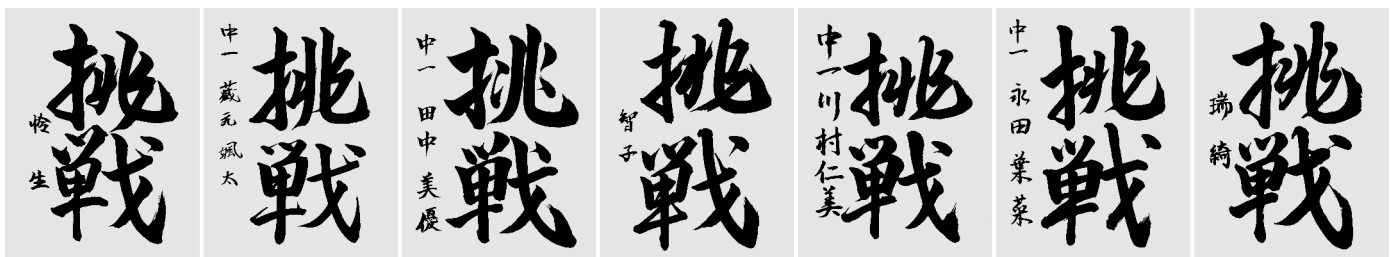 挑戦
怜生
挑戦
中一 蔵元颯太
挑戦
中一 田中美優
挑戦
智子
挑戦
中一 川村仁美
挑戦
中一 永田葉菜
挑戦
瑞綺